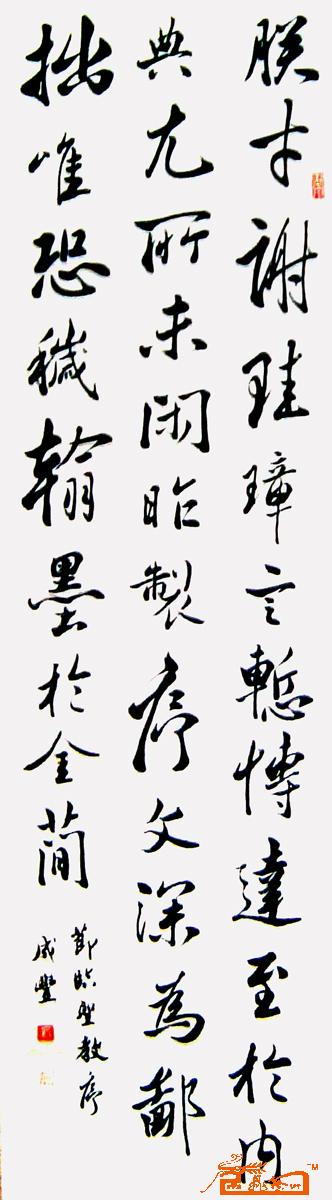 朕才謝珪璋言慙博達至於内
典尤所未閑昨製序文深為鄙
拙唯恐穢翰墨於金簡
節臨聖教序
成豐